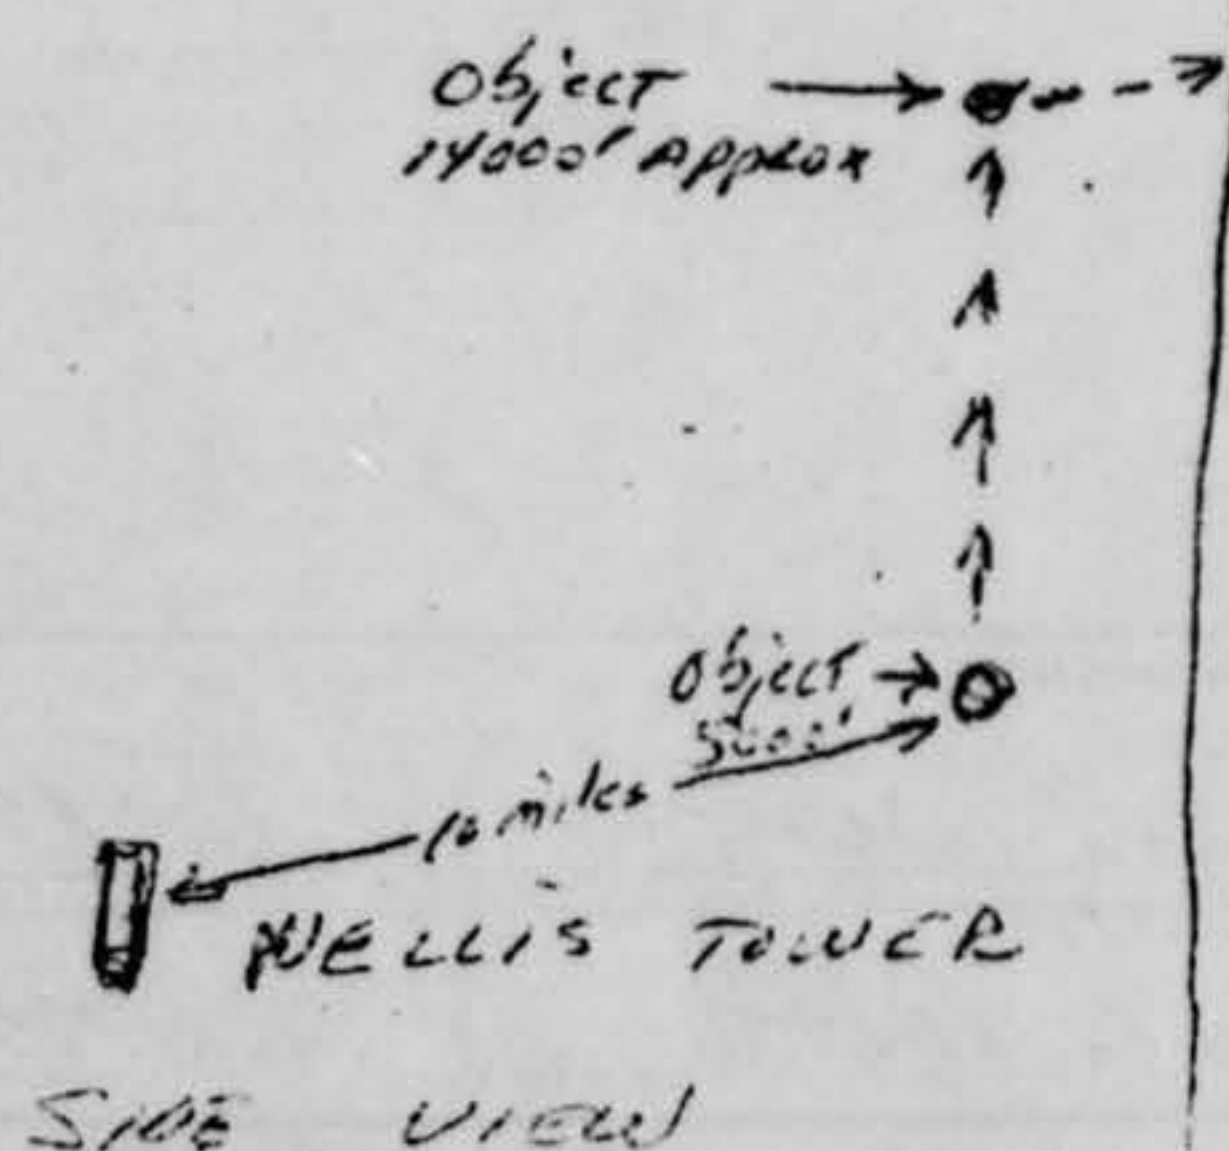 Object
14000' Approx
Object
5000'
10 miles
NELLIS TOWER
SIDE VIEW